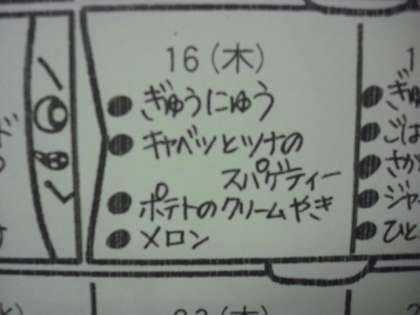 16(木)
●ぎゅうにゅう
●キャベツとツナの
スパゲティー
●ポテトのクリームやき
●メロン
1
●ぎゅ
●ごは
●さか
●ジャ
●ひと